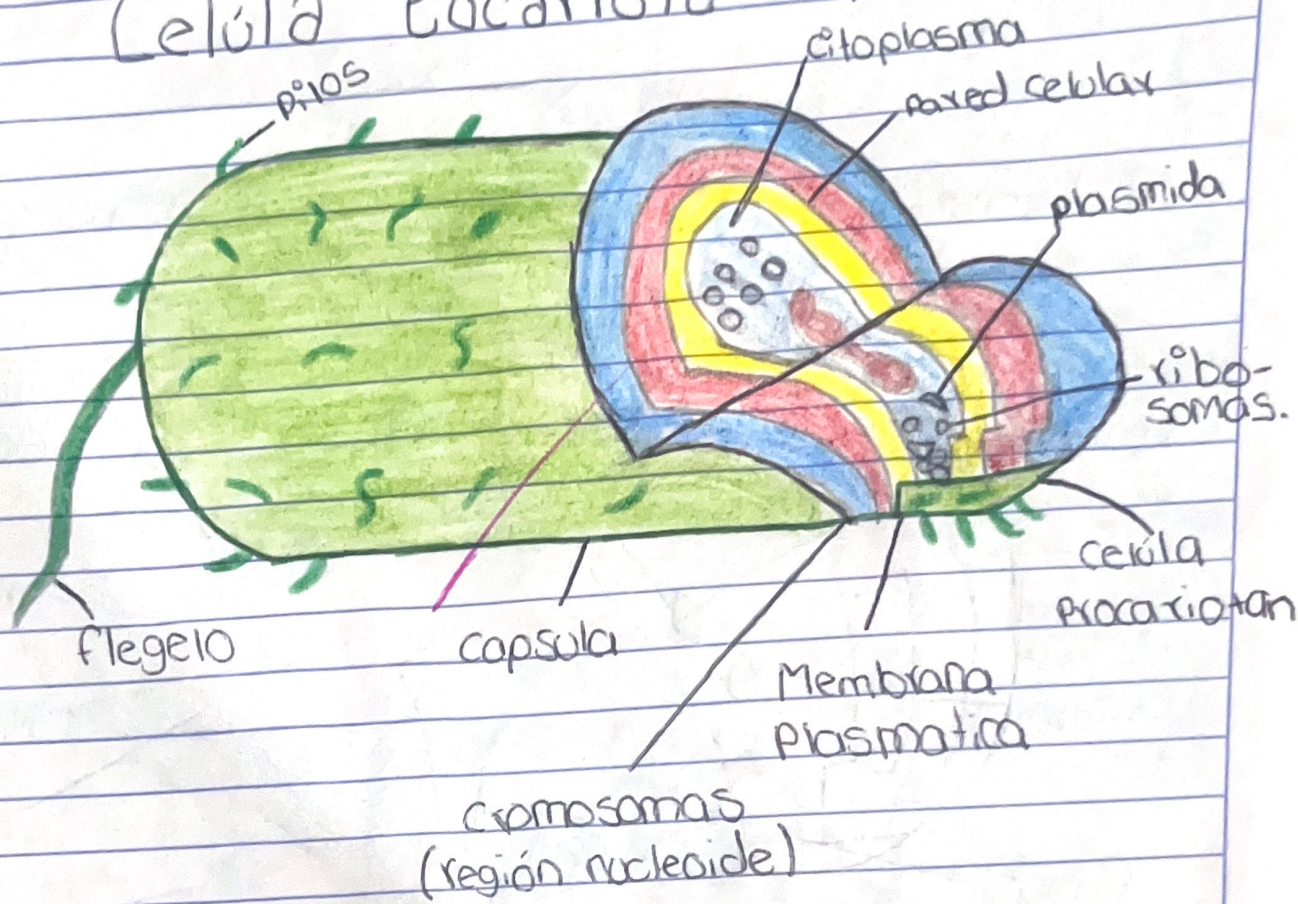 Celúla
citoplasma
pilos
pared celular
plasmida
ribo-
somas.
celúla
procariotan
flegelo
capsula
Membrana
plasmatica
cromosomas
(región nucleoide)